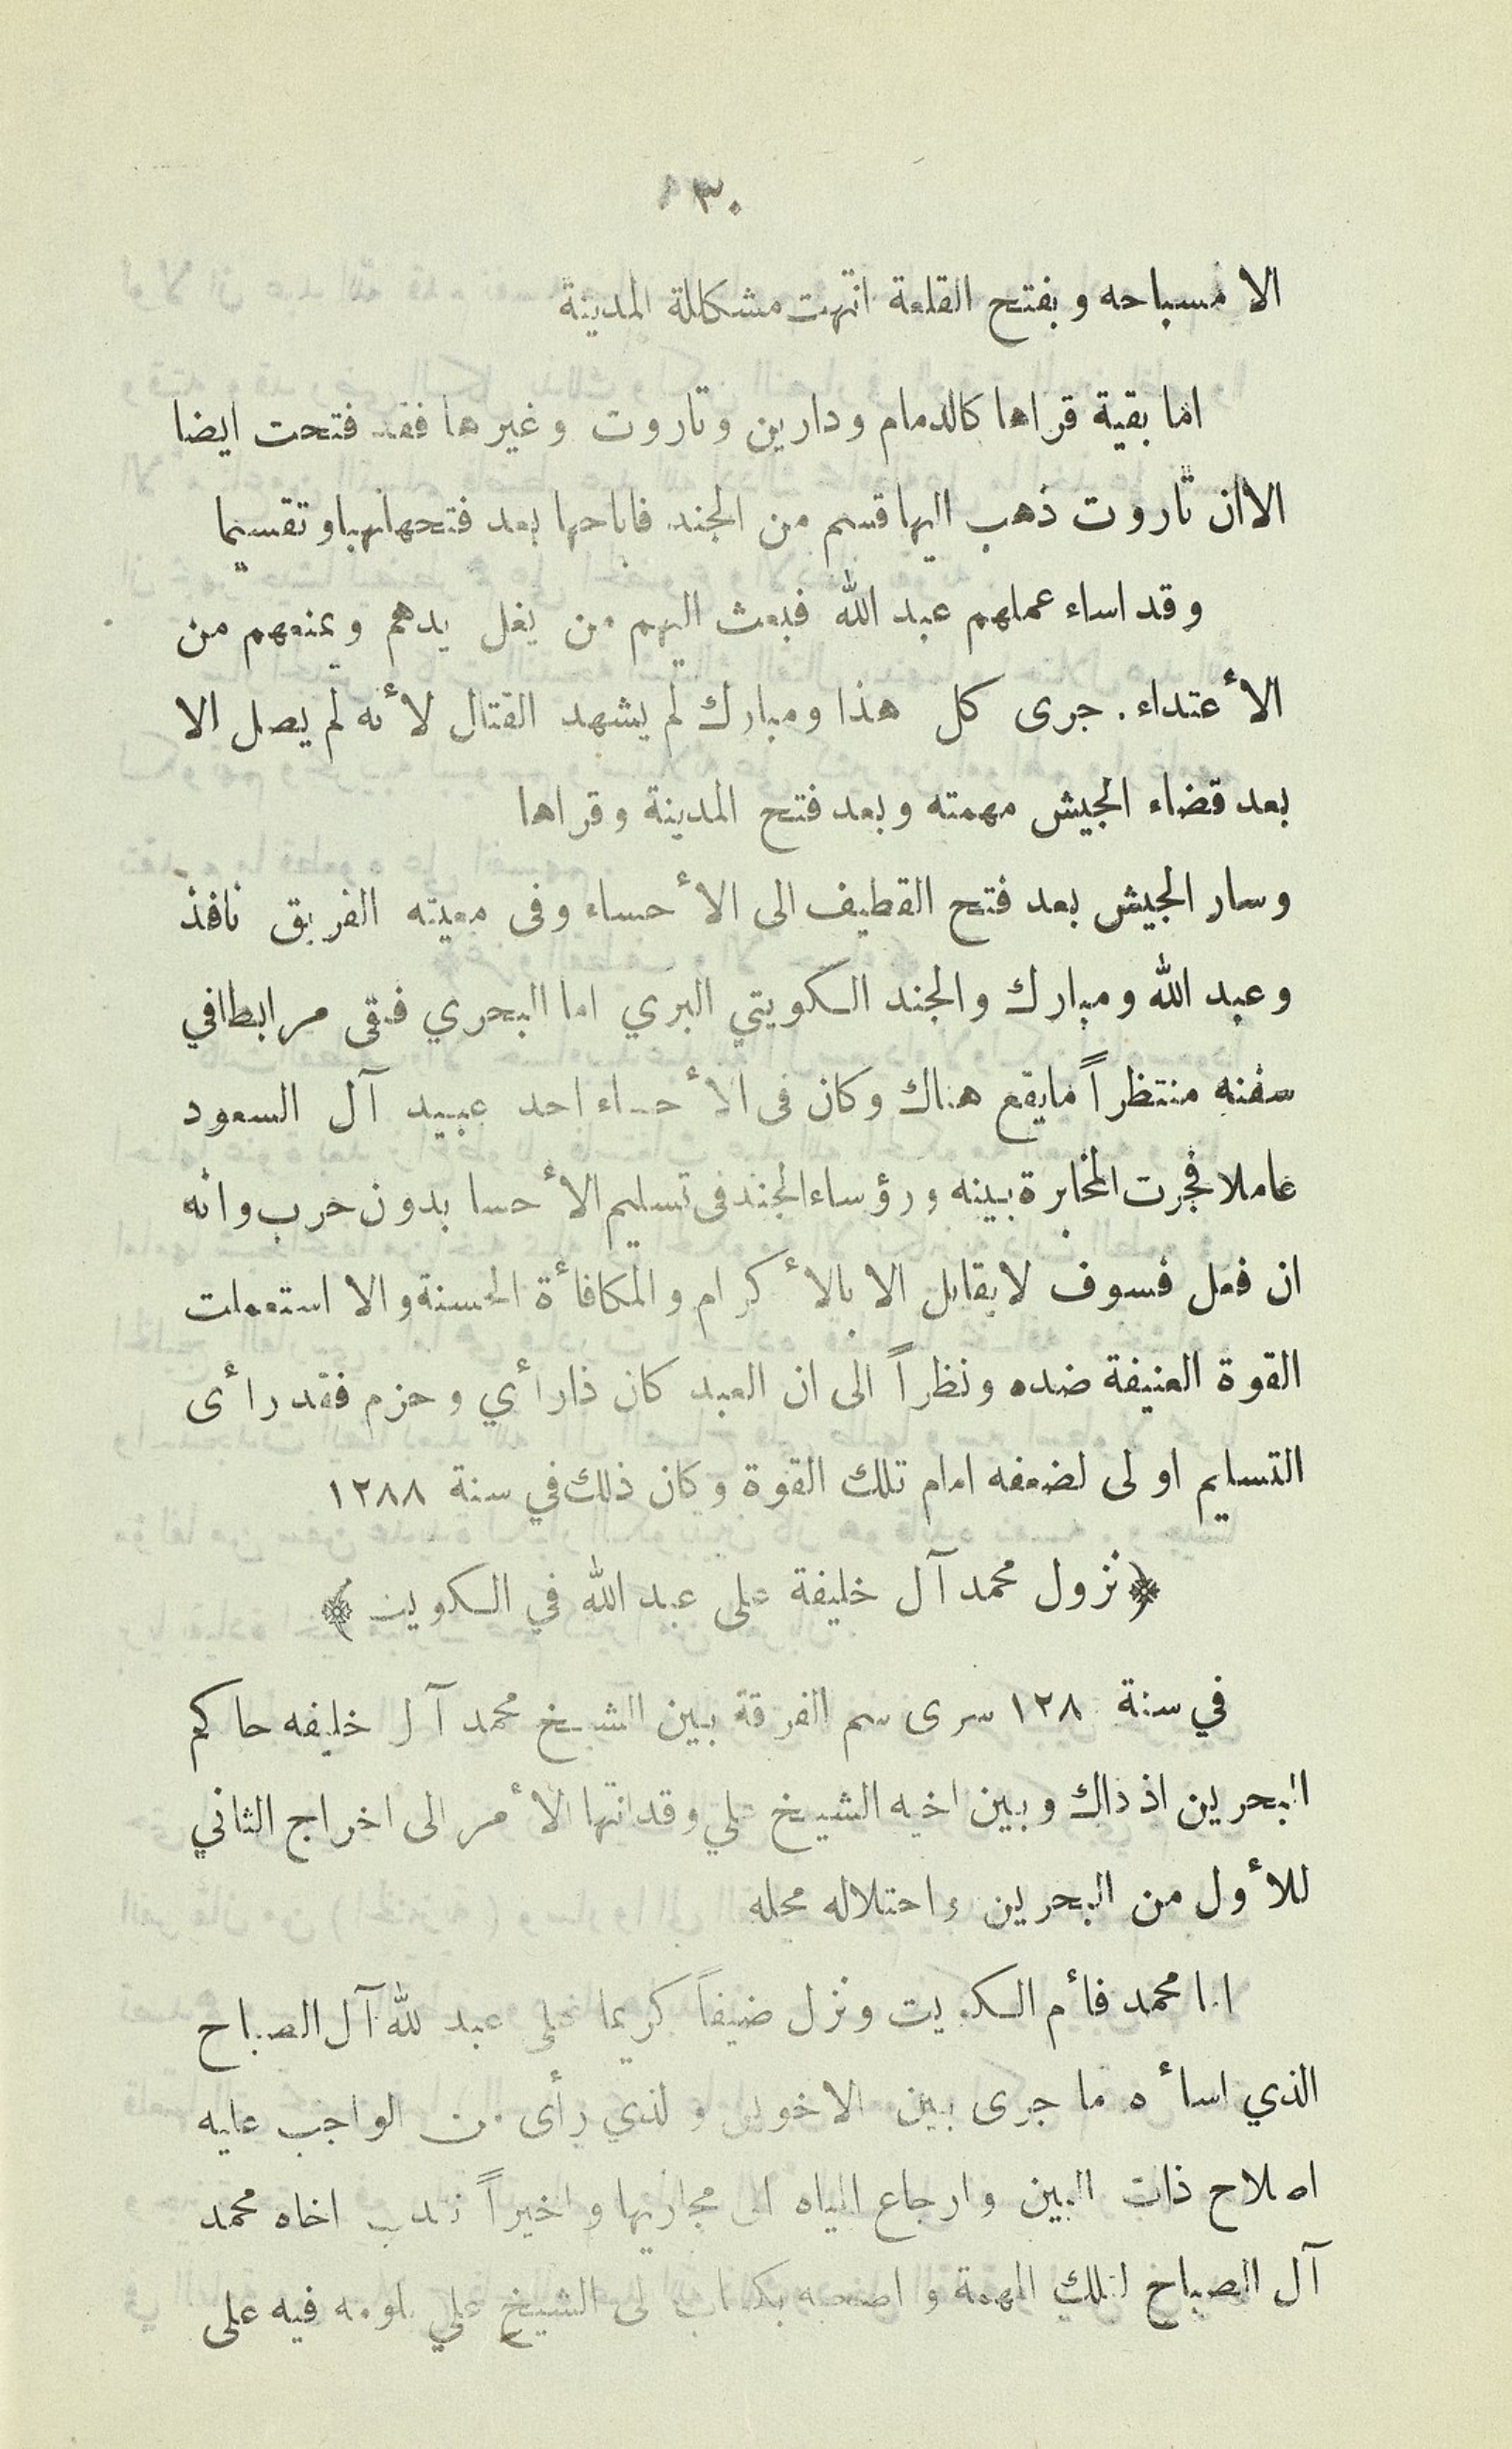 ١٣٠
الا مسباحه و بفتح القلعة انتهت مشكللة المدينة
اما بقية قراها كالدمام ودارين وتاروت وغيرها فقد فتحت ايضا
الاان تاروت ذهب اليها قسم من الجند فاباحها بعد فتحها نهبا و تقسيما
وقد اساء عملهم عبد الله فبعث اليهم من يغل يدهم ويمنعهم من
الأعتداء . جرى كل هذا ومبارك لم يشهد القتال لأنه لم يصل الا
بعد قضاء الجيش مهمته وبعد فتح المدينة وقراها
وسار الجيش بعد فتح القطيف الى الأحساء وفى معيته الفريق نافذ
وعبد الله ومبارك والجند الكويتي البري اما البحري فبقى مرابطا في
سفنه منتظراً مايقع هناك وكان فى الأحساء احد عبيد آل السعود
عاملا فجرت المخابرة بينه ورؤساء الجند فى تسليم الأحسا بدون حرب وانه
ان فعل فسوف لايقابل الا بالأكرام والمكافأة الحسنة والا استعملت
القوة العنيفة ضده ونظراً الى ان العبد كان ذارأي وحزم فقد رأى
التسليم اولى لضعفه امام تلك القوة وكان ذلك في سنة ١٢٨٨
﴿ نزول محمد آل خليفة على عبد الله في الكويت ﴾
في سنة ١٢٨ سرى سم الفرقة بين الشيخ محمد آل خليفه حاكم
البحرين اذ ذاك وبين اخيه الشيخ علي وقد انتها الأمر الى اخراج الثاني
للأول من البحرين واحتلاله محله
اما محمد فأم الكويت ونزل ضيفاً كريما على عبد لله آل الصباح
الذي اسأه ما جرى بين الاخوين ولذي رأى من الواجب عليه
اصلاح ذات البين وارجاع المياه الى مجاريها واخيراً ندب اخاه محمد
آل الصباح لتلك المهمة واصحبه بكتاب لى الشيخ علي يلومه فيه على